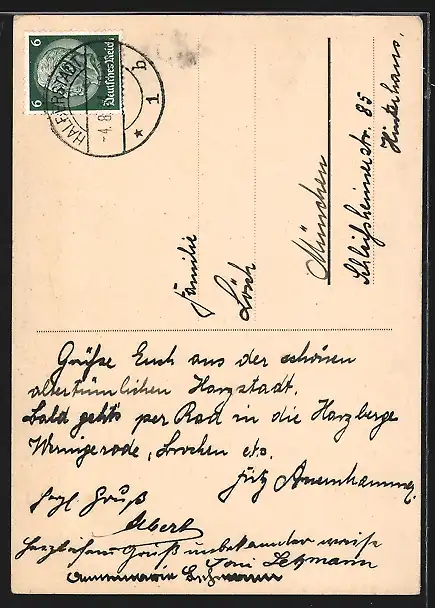 6 6
Deutsches Reich
HALBERSTADT
-4.8.
* 1 b
Familie
Lösch
München
Schleißheimerstr. 85
Hinterhaus.
Grüße Euch aus der schönen
altertümlichen Harzstadt.
Bald gehts per Rad in die Harzberge
Wernigerode, Brocken etc.
Fritz
hrzl Gruß
Albert
Herzlichen Gruß unbekannter weise
Toni Lehmann
Annemarie Lehmann